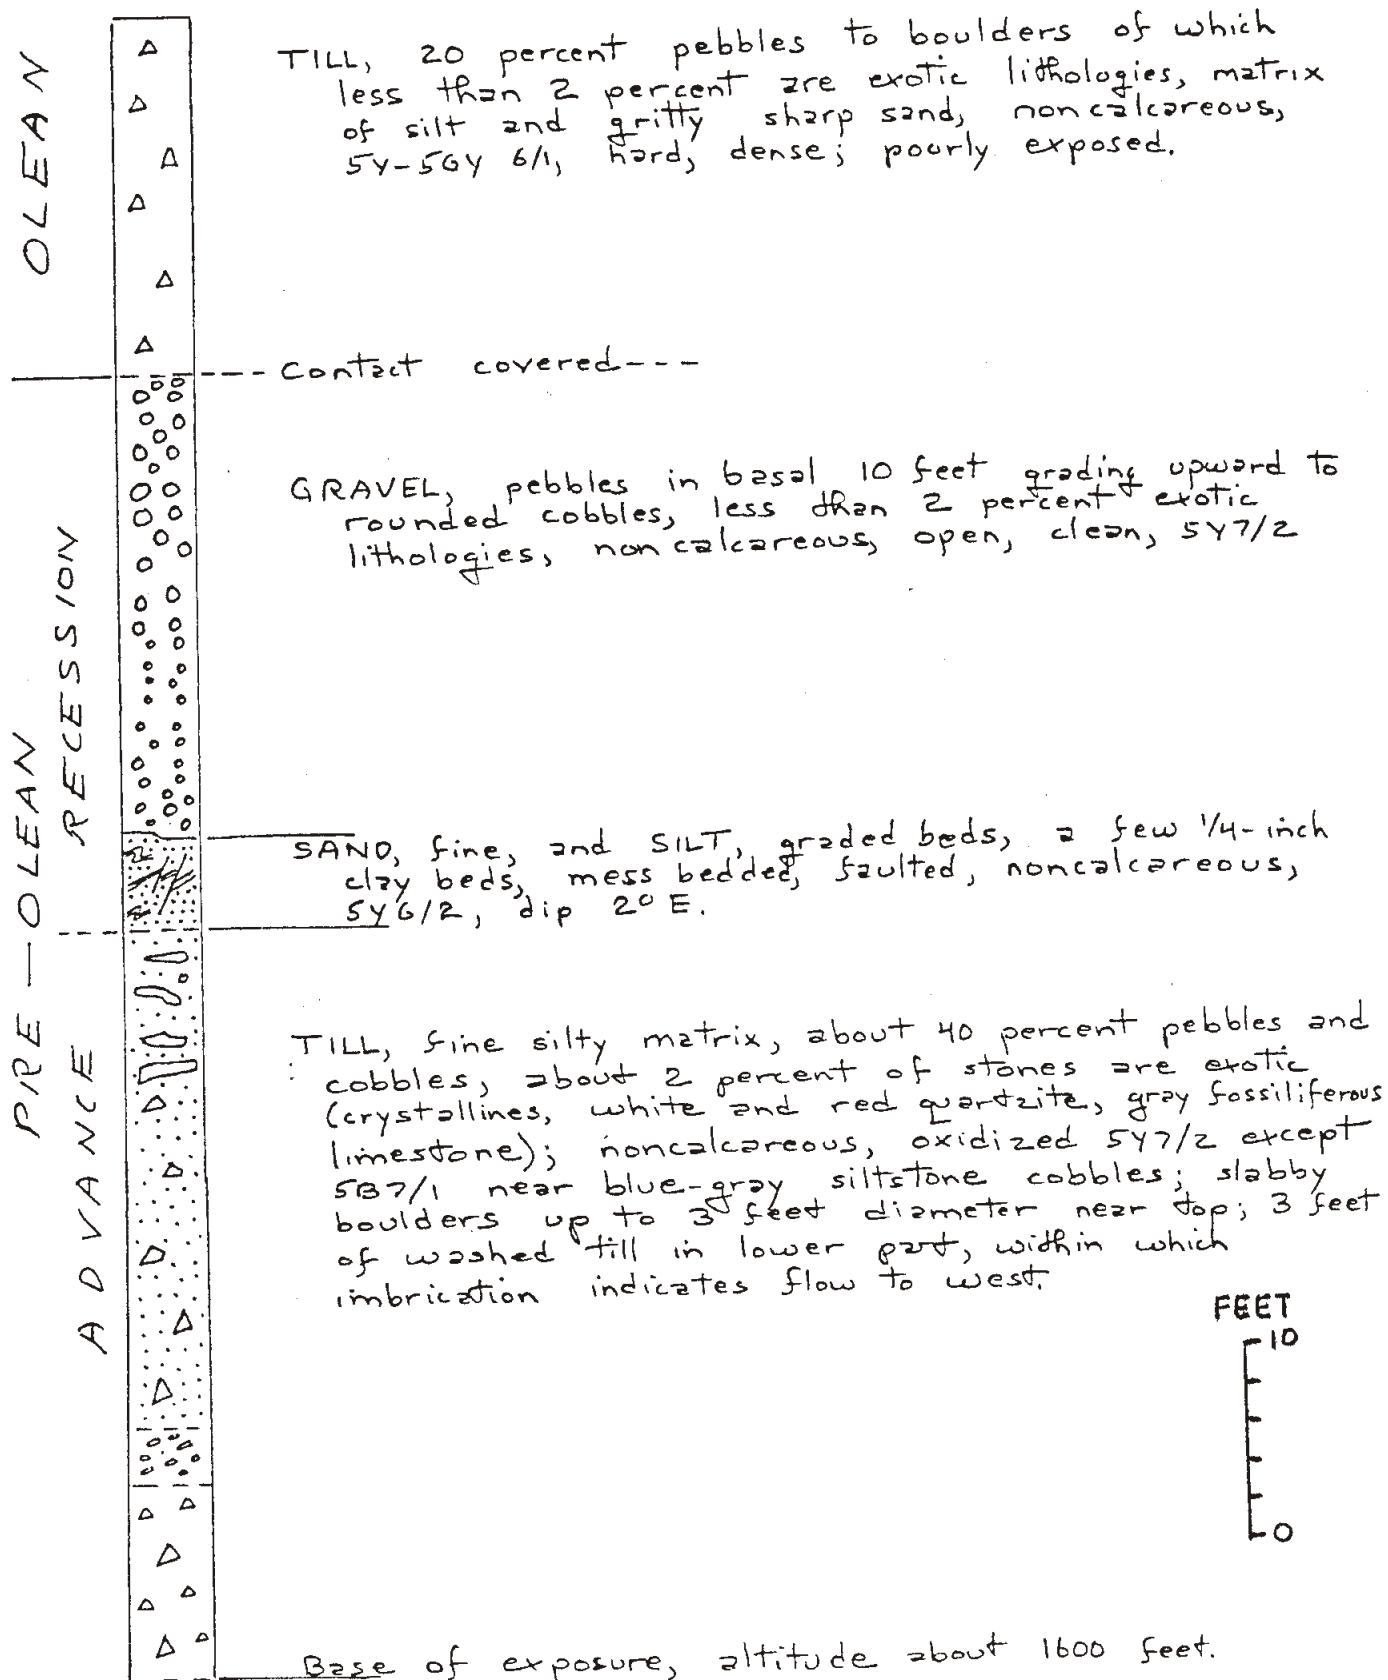 OLEAN
TILL, 20 percent pebbles to boulders of which
less than 2 percent are exotic lithologies, matrix
of silt and gritty sharp sand, noncalcareous,
5Y-5GY 6/1, hard, dense; poorly exposed.
--- Contact covered ---
PRE-OLEAN
RECESSION
GRAVEL, pebbles in basal 10 feet grading upward to
rounded cobbles, less than 2 percent exotic
lithologies, noncalcareous, open, clean, 5Y7/2
SAND, fine, and SILT, graded beds, a few 1/4-inch
clay beds, mess bedded, faulted, noncalcareous,
5Y6/2, dip 2° E.
ADVANCE
TILL, fine silty matrix, about 40 percent pebbles and
cobbles, about 2 percent of stones are exotic
(crystallines, white and red quartzite, gray fossiliferous
limestone); noncalcareous, oxidized 5Y7/2 except
5B7/1 near blue-gray siltstone cobbles; slabby
boulders up to 3 feet diameter near top; 3 feet
of washed till in lower part, within which
imbrication indicates flow to west.
FEET
10
0
Base of exposure, altitude about 1600 feet.